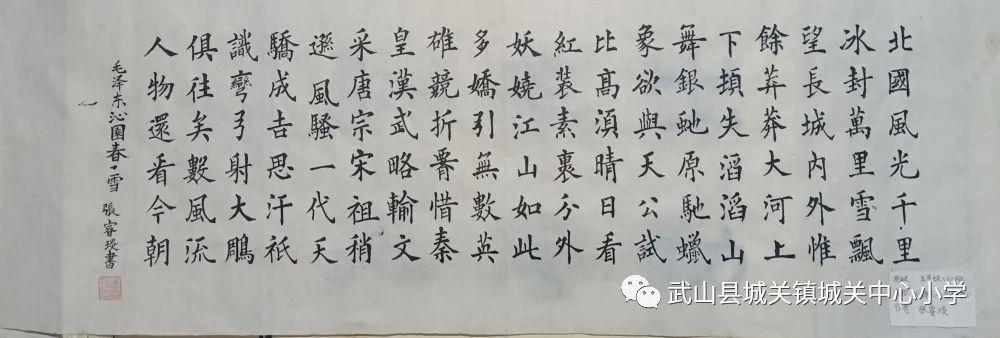 北國風光千里
冰封萬里雪飄
望長城內外惟
餘莽莽大河上
下頓失滔滔山
舞銀虵原馳蠟
象欲與天公試
比高湏晴日看
紅裝素裹分外
妖嬈江山如此
多嬌引無數英
雄競折惜秦
皇漢武略輸文
采唐宗宋祖稍
遜風騷一代天
驕成吉思汗祇
識彎弓射大鵰
俱往矣數風流
人物還看今朝
毛泽东沁園春·雪 張睿書
武山县城关镇城关中心小学